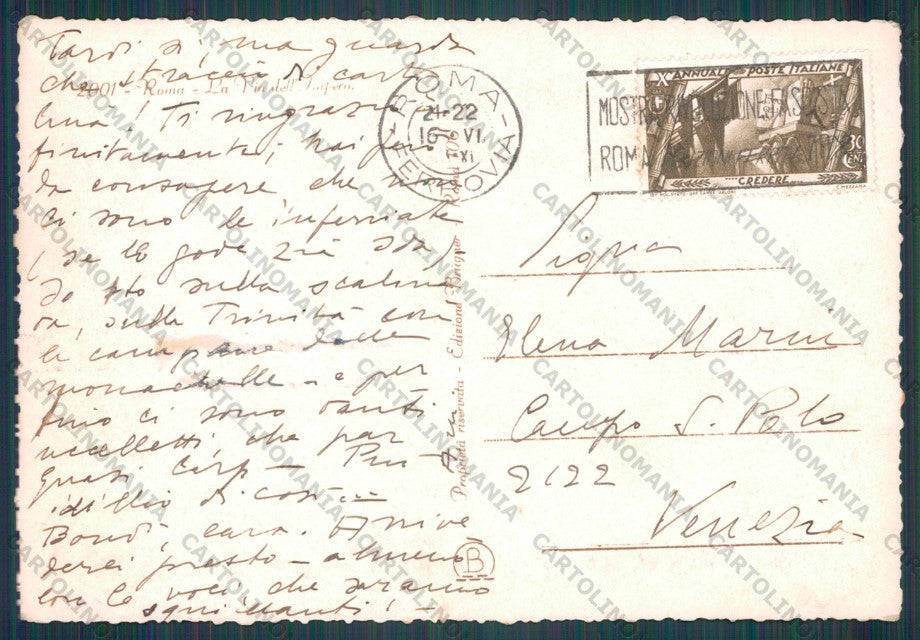 Tardi sì, ma guarda
che straccia di carto
lina! Ti ringrazio in
finitamente; hai fen
da consapere che non
ci sono le infernate
(se le gode zia Ida)
Io sto sulla scalina
ta, sulla Trinità con
le campane delle
monachelle – e per
fino ci sono tanti
uccelletti che par
quasi – Più
idillio di così...
Bondì, cara. Arrive
derci presto – almeno
con le voci che saranno
squillanti! –
2001 - Roma - La Via dell'Impero.
ROMA
FERROVIA
21-22
16 VI
XI
MOSTRA RIVOLUZIONE FASCISTA
ROMA
X ANNUALE POSTE ITALIANE
30
CENT
CREDERE
Proprietà riservata - Edizioni d'Arte Bruner - Roma
B
Sig.na
Elena Marin
Campo S. Polo
2122
Venezia
CARTOLINOMANIA